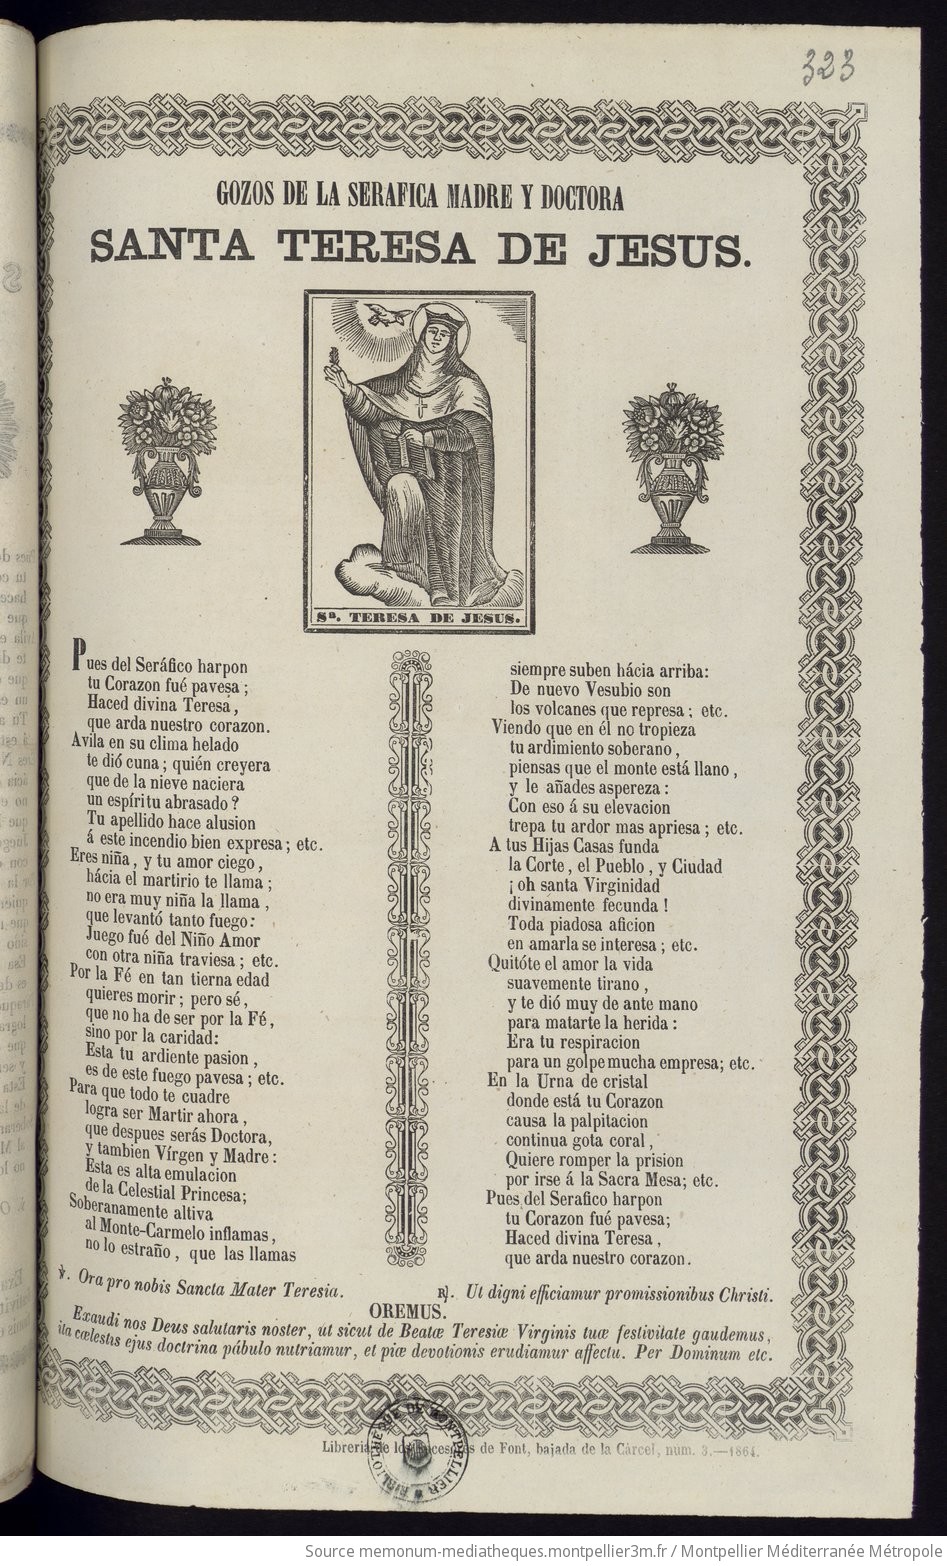 323
GOZOS DE LA SERAFICA MADRE Y DOCTORA
SANTA TERESA DE JESUS.
Sª. TERESA DE JESUS.
Pues del Seráfico harpon
tu Corazon fué pavesa ;
Haced divina Teresa ,
que arda nuestro corazon.
Avila en su clima helado
te dió cuna ; quién creyera
que de la nieve naciera
un espíritu abrasado ?
Tu apellido hace alusion
á este incendio bien expresa ; etc.
Eres niña , y tu amor ciego ,
hácia el martirio te llama ;
no era muy niña la llama ,
que levantó tanto fuego:
Juego fué del Niño Amor
con otra niña traviesa ; etc.
Por la Fé en tan tierna edad
quieres morir ; pero sé ,
que no ha de ser por la Fé ,
sino por la caridad:
Esta tu ardiente pasion ,
es de este fuego pavesa ; etc.
Para que todo te cuadre
logra ser Martir ahora ,
que despues serás Doctora,
y tambien Vírgen y Madre :
Esta es alta emulacion
de la Celestial Princesa;
Soberanamente altiva
al Monte-Carmelo inflamas ,
no lo estraño , que las llamas
siempre suben hácia arriba:
De nuevo Vesubio son
los volcanes que represa ; etc.
Viendo que en él no tropieza
tu ardimiento soberano ,
piensas que el monte está llano ,
y le añades aspereza :
Con eso á su elevacion
trepa tu ardor mas apriesa ; etc.
A tus Hijas Casas funda
la Corte , el Pueblo , y Ciudad
¡ oh santa Virginidad
divinamente fecunda !
Toda piadosa aficion
en amarla se interesa ; etc.
Quitóte el amor la vida
suavemente tirano ,
y te dió muy de ante mano
para matarte la herida :
Era tu respiracion
para un golpe mucha empresa; etc.
En la Urna de cristal
donde está tu Corazon
causa la palpitacion
continua gota coral ,
Quiere romper la prision
por irse á la Sacra Mesa; etc.
Pues del Serafico harpon
tu Corazon fué pavesa;
Haced divina Teresa ,
que arda nuestro corazon.
℣. Ora pro nobis Sancta Mater Teresia. ℟. Ut digni efficiamur promissionibus Christi.
OREMUS.
Exaudi nos Deus salutaris noster, ut sicut de Beatæ Teresiæ Virginis tuæ festivitate gaudemus,
ita cœlestis ejus doctrina pábulo nutriamur, et piæ devotionis erudiamur affectu. Per Dominum etc.
Libreria de los sucesores de Font, bajada de la Cárcel, num. 3.—1864.
BIBLIOTHEQUE DE MONTPELLIER
Source memonum-mediatheques.montpellier3m.fr / Montpellier Méditerranée Métropole